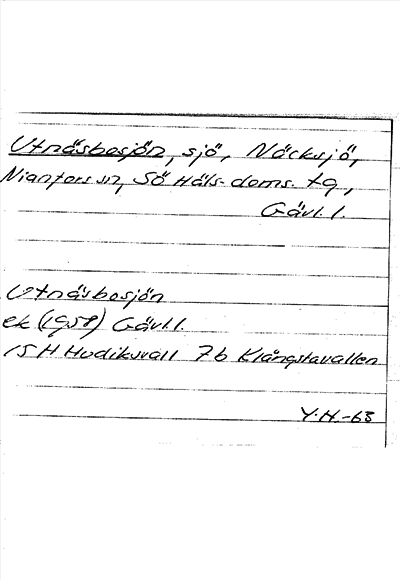 Utnäsbosjön, sjö, Näcksjö,
Nianfors sn, Sö Häls. doms. tg,
Gävl. l.
Utnäsbosjön
ek (1958) Gävl. l.
15 H Hudiksvall 7b Klångstavallen
Y.H.-63